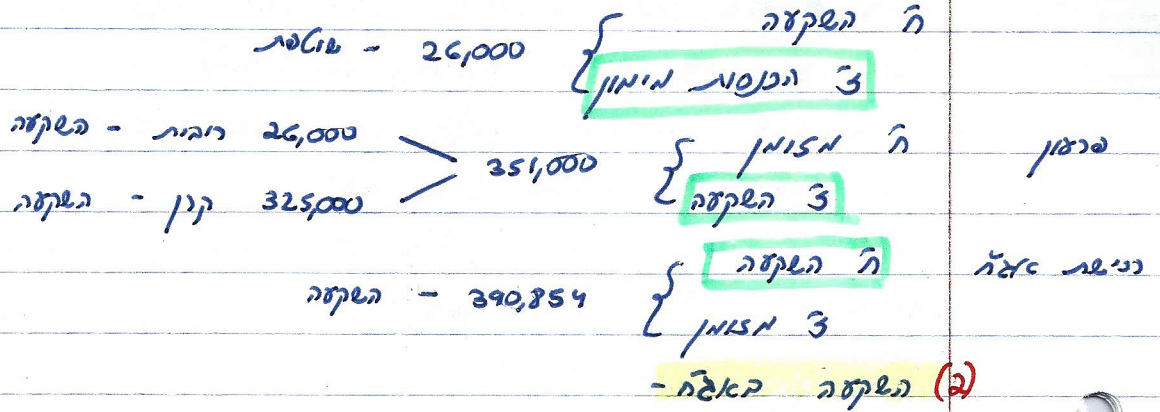 ח' השקעה
ז' הכנסות מימון
26,000 - שוטפת
פרעון
ח' מזומן
ז' השקעה
351,000
26,000 ריבית - השקעה
325,000 קרן - השקעה
רכישת אג"ח
ח' השקעה
ז' מזומן
390,854 - השקעה
(2) השקעה באג"ח -